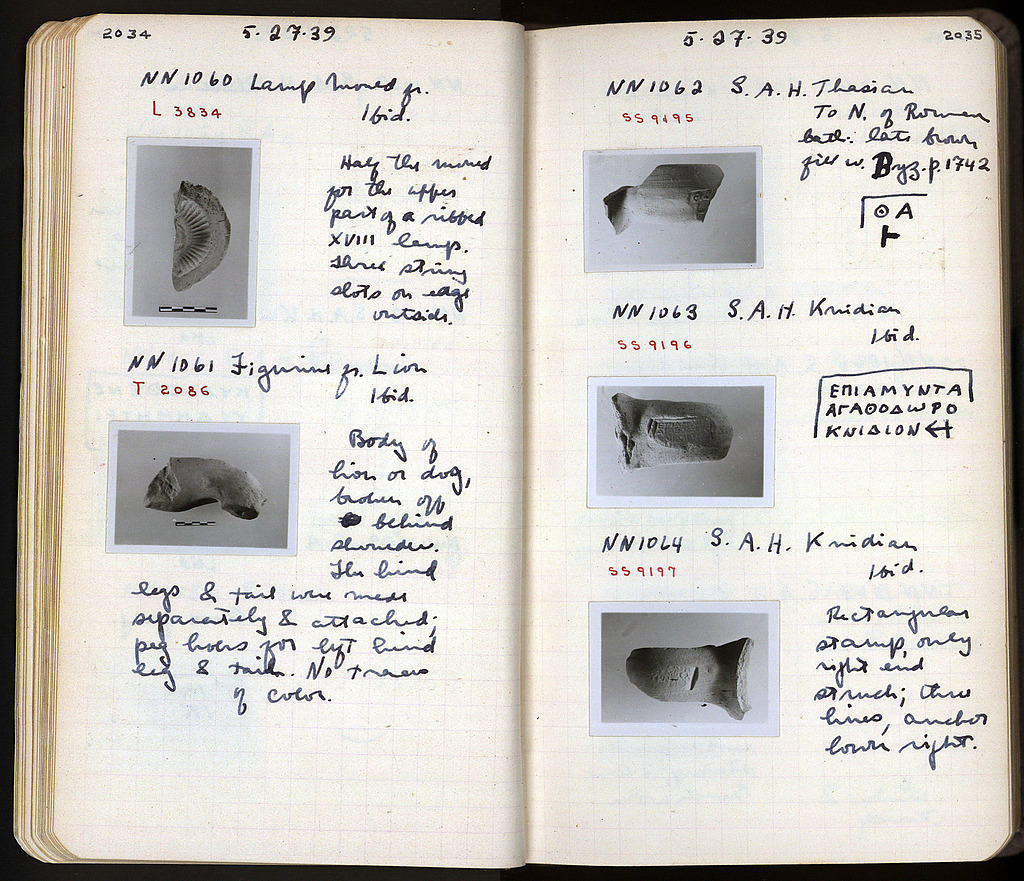 2034
5-27-39
NN1060 Lamp mould fr.
L 3834
Ibid.
Half the mould
for the upper
part of a ribbed
XVIII lamp.
Three string
slots on edge
outside.
NN1061 Figurine fr. Lion
T 2086
Ibid.
Body of
lion or dog,
broken off
behind
shoulder.
The hind
legs & tail were made
separately & attached;
peg holes for left hind
leg & tail. No traces
of color.
5-27-39
2035
NN1062 S.A.H. Thasian
SS9195
To N. of Roman
bath: late brown
fill w. Byz. p. 1742
ΘΑ
NN1063 S.A.H Knidian
SS9196
Ibid.
ΕΠΙΑΜΥΝΤΑ
ΑΓΑΘΟΔΩΡΟ
ΚΝΙΔΙΟΝ
NN1064 S.A.H. Knidian
SS9197
Ibid.
Rectangular
stamp, only
right end
struck; three
lines, anchor
lower right.